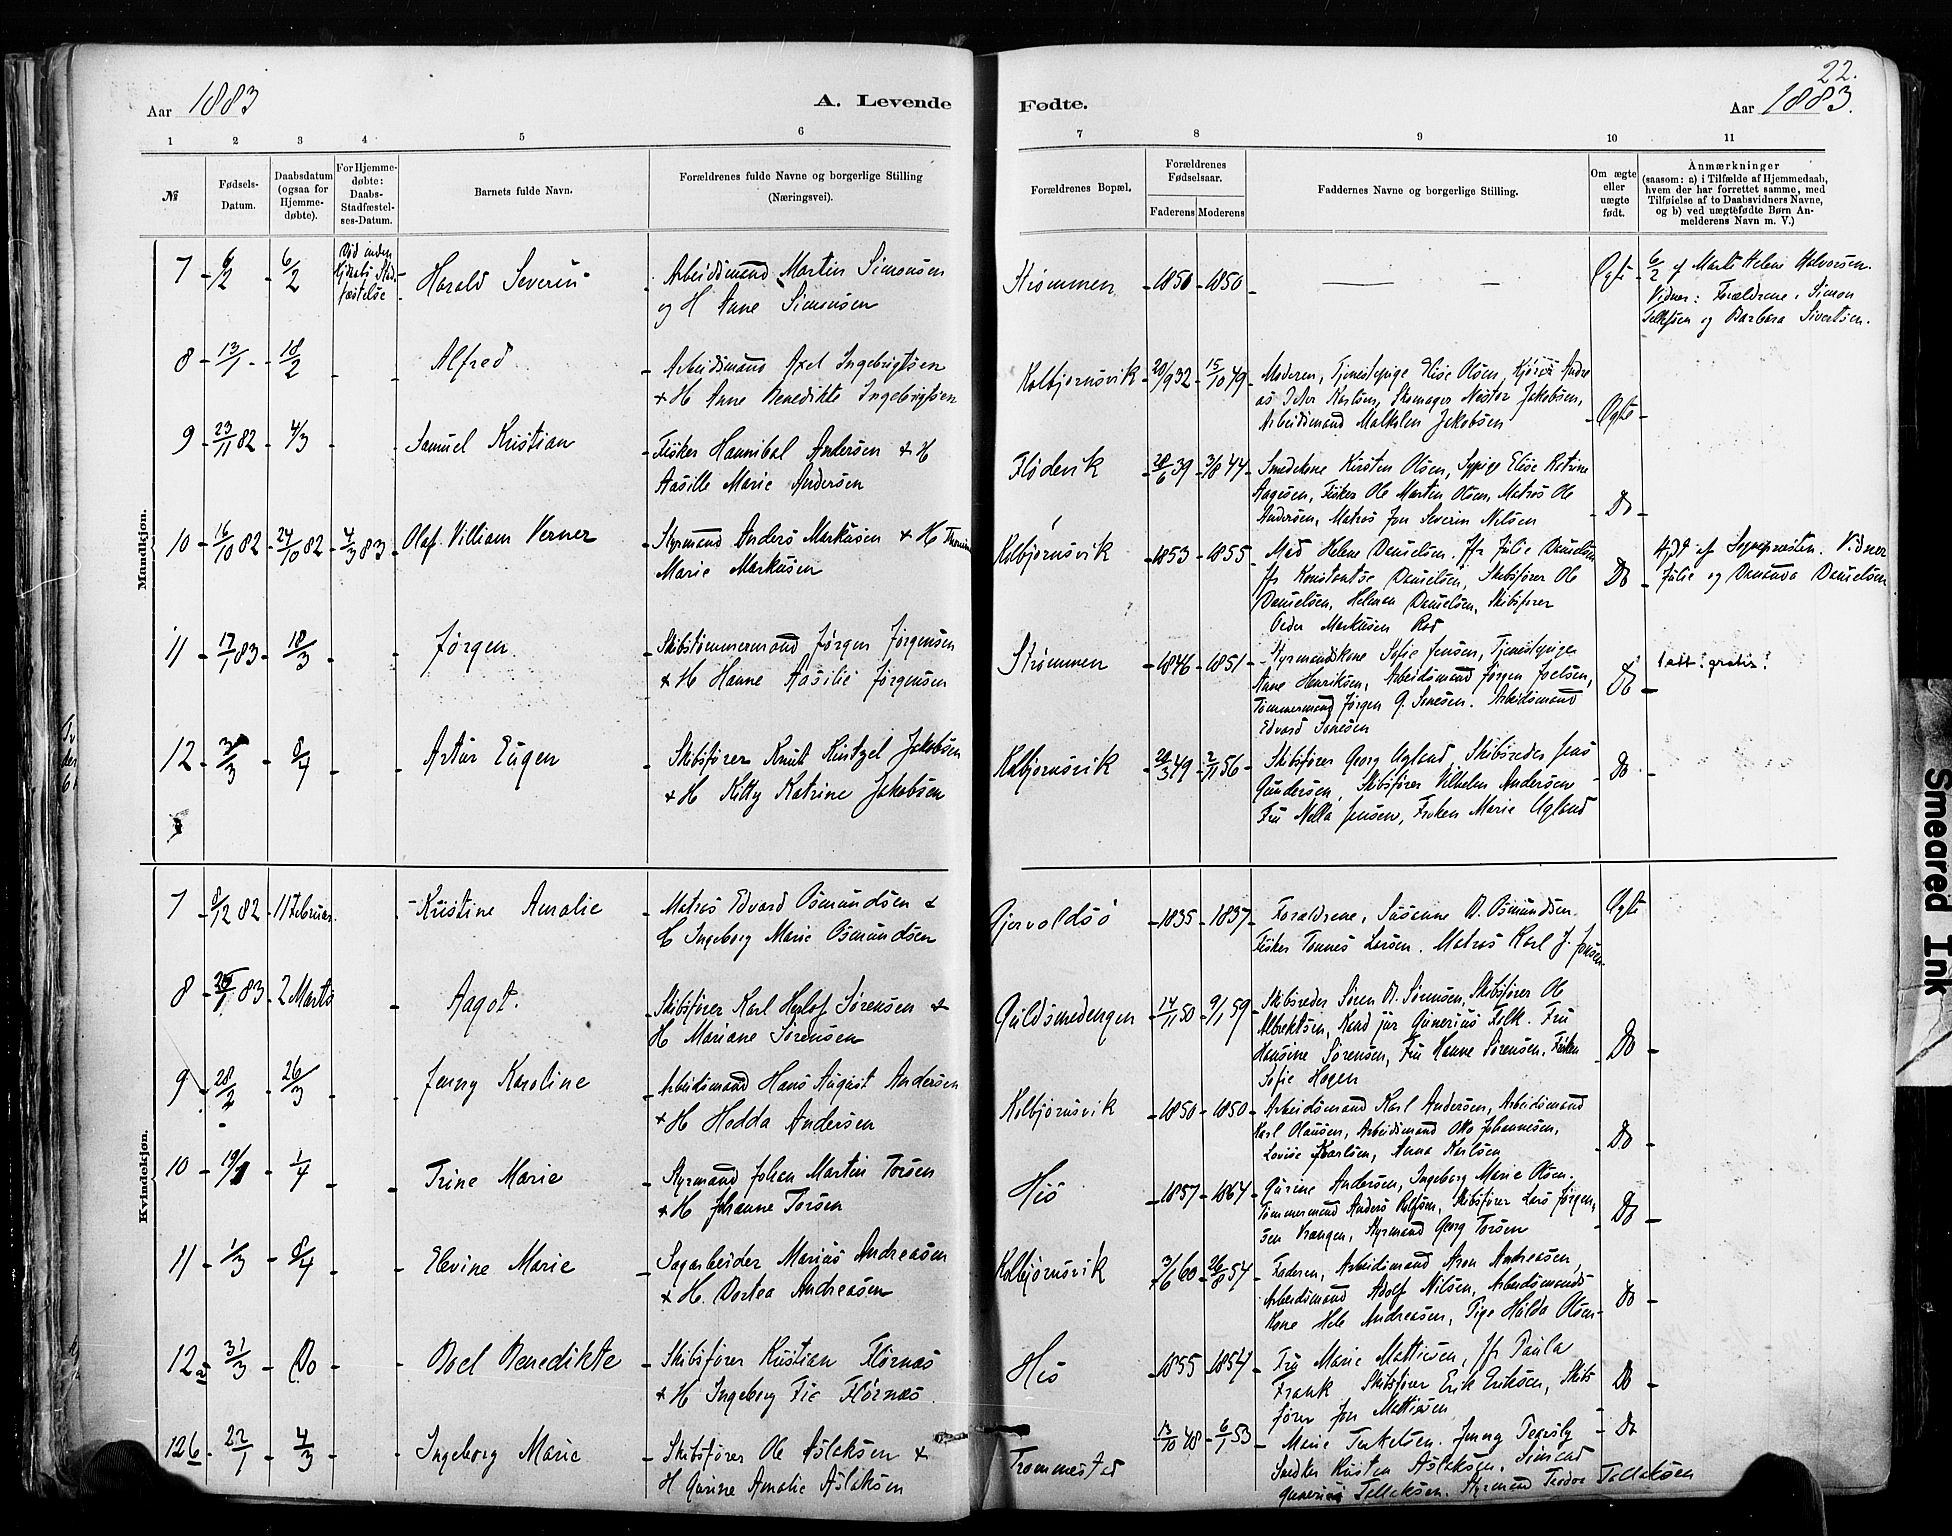 22.
Aar 1883
A. Levende
Fødte.
Aar 1883.
1 2 3 4 5 6
7 8 9 10 11
№
Fødsels-
Datum.
Daabsdatum
(ogsaa for
Hjemme-
døbte).
For Hjemme-
døbte:
Daabs-
Stadfæstel-
ses-Datum.
Barnets fulde Navn.
Forældrenes fulde Navne og borgerlige Stilling
(Næringsvei).
Forældrenes Bopæl.
Forældrenes
Fødselsaar.
Faderens Moderens
Faddernes Navne og borgerlige Stilling.
Om ægte
eller
uægte
født.
Anmærkninger
(saasom: a) i Tilfælde af Hjemmedaab,
hvem der har forrettet samme, med
Tilføielse af to Daabsvidners Navne,
og b) ved uægtefødte Børn An-
melderens Navn m. V.)
Mandkjøn.
7 6/2 6/2
Død inden
Kirkens Stad
fæstelse
Harald Severin
Arbeidsmand Martin Simonsen
og H Anne Simonsen
Strømmen 1850 1850
Ægte
6/2 af Marte Helene Halvorsen.
Vidner: Forældrene, Simon
og Barbara Sivertsen.
8 13/1 18/2
Alfred
Arbeidsmand Axel Ingebrigtsen
+ H Anne Benedikte Ingebrigtsen
Kolbjørnsvik 20/9 32 15/10 49
Moderen, Tjenestepige Elise Olsen, Andre
as Peter Karlsen, Skomager Nestor Jakobsen,
Arbeidsmand Jakobsen
Ægte
9 23/11 82 4/3
Samuel Kristian
Fisker Hannibal Andersen + H
Aasille Marie Andersen
Flødevik 28/6 39 3/10 44
Smedekone Kirsten Olsen, Sypige Elise Katrine
Aagesen, Fisker Ole Martin Olsen, Matros Ole
Andersen, Matros Jon Severin Nilsen
Do
10 16/10 82 24/10 82 4/3 83
Olaf Villiam Verner
Styrmand Anders Markusen + H
Marie Markusen
Kolbjørnsvik 1853 1855
Mad Helene Danielsen. Jfr Julie Danielsen
Jfr Konstantse Danielsen, Skibsfører Ole
Danielsen, Helmen Danielsen, Skibsfører
Peder Markusen Rød
Do
Hjdt af Sognepresten. Vidner
Julie og Danielsen
11 17/1 83 18/3
Jørgen
Skibstømmermand Jørgen Jørgensen
+ H Hanne Aasilie Jørgensen
Strømmen 1846 1851
Styrmandskone Sofie Jensen, Tjenestepige
Anne Henriksen, Arbeidsmand Jørgen Joelsen,
Tømmermand Jørgen G. Sonesen. Arbeidsmand
Edvard Sonesen
Do
12 3/3 8/4
Artur Eugen
Skibsfører Knut Kintzel Jakobsen
+ H Kitty Katrine Jakobsen
Kolbjørnsvik 20/3 49 2/11 56
Skibsfører Georg Ugland, Skibsreder Jens
Gundersen, Skibsfører Vilhelm Andersen
Fru Jensen, Frøken Marie Ugland
Do
Kvindekjøn.
7 8/12 82 11 Februar
Kristine Amalie
Matros Edvard Osmundsen &
H Ingeborg Marie Osmundsen
Gjervoldsø 1835 1837
Forældrene, Susanne O. Osmundsen
Fisker Tønnes Larsen. Matros Karl J. Jonsen
Ægte
8 83 2 Marts
Aagot.
Skibsfører Karl Herlof Sørensen &
H Mariane Sørensen
Guldsmedengen 14/11 50 9/1 59
Skibsreder Søren A. Sørensen, Skibsfører Ole
Albrektsen, Kand jur Gunerius Falk. Fru
Hansine Sørensen, Fru Hanne Sørensen, Frøken
Sofie Hagen
Do
9 28/2 26/3
Jenny Karoline
Arbeidsmand Hans August Andersen
+ H Hedda Andersen
Kolbjørnsvik 1850 1850
Arbeidsmand Karl Andersen, Arbeidsmand
Karl Olausen, Arbeidsmand Otto Johannesen,
Lovise Karlsen, Anna Karlsen
Do
10 19/1 1/4
Trine Marie
Styrmand Johan Martin Torsen
+ H Johanne Torsen
Hisø 1857 1864
Gurine Andersen, Ingeborg Marie Olsen.
Tømmermand Anders Rolfsen, Skibsfører Lars Jørgen
sen Vrangen, Styrmand Georg Torsen
Do
11 1/3 8/4
Elevine Marie
Sagarbeider Marius Andreasen
+ H. Dortea Andreasen
Kolbjørnsvik 3/6 60 26/8 54
Faderen, Arbeidsmand Aron Andreasen,
Arbeidsmand Adolf Nilsen, Arbeidsmands
Kone Hele Andreasen, Pige Hulda Olsen
Do
12a 31/3 Do
Boel Benedikte
Skibsfører Kristian Flørnæs
+ H Ingeborg Fie Flørnæs.
Hisø 1855 1854
Fru Marie Mattiesen, Jfr Paula
Frank, Skibsfører Erik Eriksen, Skibs
fører Jon Mattiesen
Do
12b 22/1 4/3
Ingeborg Marie
Skibsfører Ole Aslaksen &
H Gurine Amalie Aslaksen
Trommestad 13/10 48 6/1 53
Marie Terkelsen. Jenny
Snedker Kristen Aslaksen.
Gunerius Tellefsen. Styrmand Teodor Tellefsen
Do
Smeared Ink